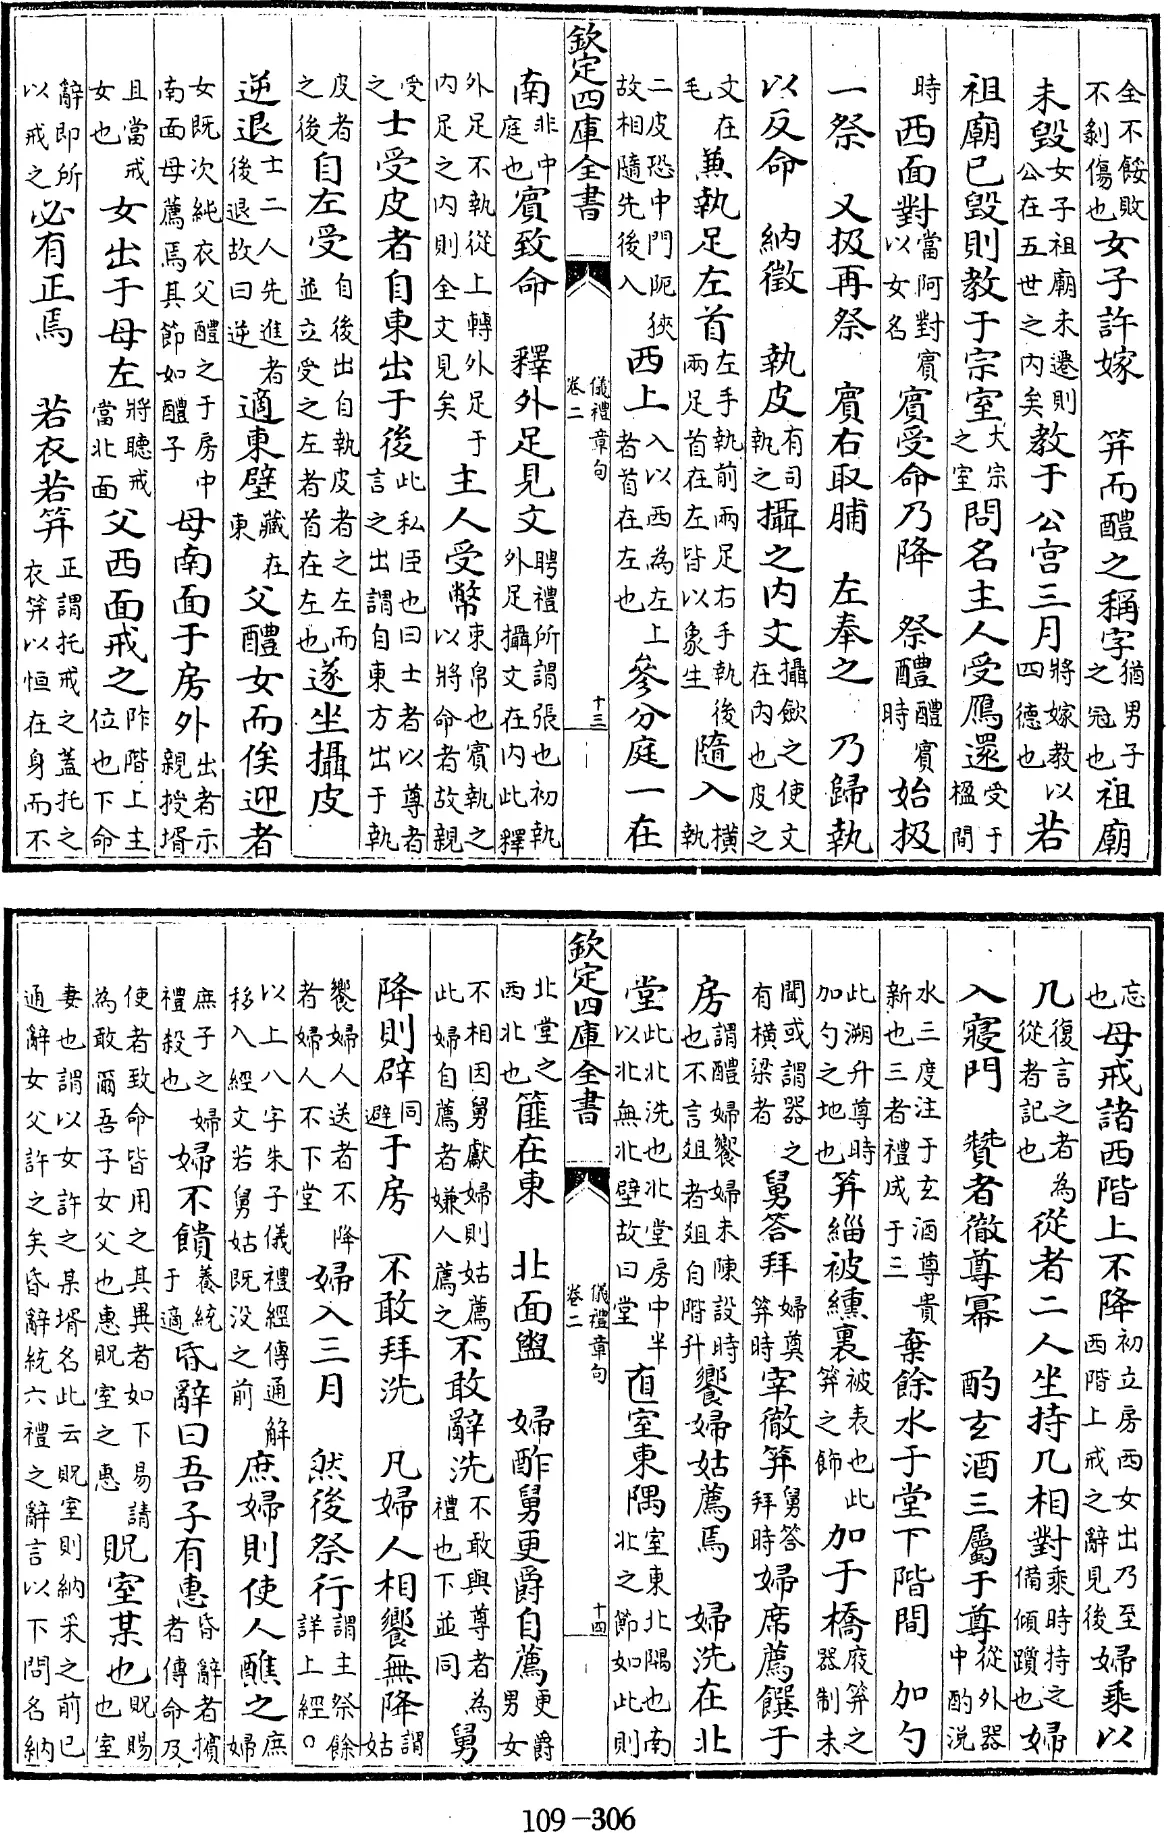 全不餒敗不剝傷也女子許嫁 笄而醴之稱字猶男子之冠也祖廟
未毁女子祖廟未遷則公在五世之内矣教于公宫三月將嫁教以四德也若
祖廟已毁則教于宗室大宗之室問名主人受鴈還受于楹間
時西面對當阿對賓以女名賓受命乃降 祭醴醴賓時始扱
一祭 又扱再祭 賓右取脯 左奉之 乃歸執
以反命 納徵 執皮有司執之攝之内文攝斂之使文在内也皮之
文在毛兼執足左首左手執前兩足右手執後兩足首在左皆以象生隨入橫執
二皮恐中門阨狹故相隨先後入西上入以西為左上者首在左也參分庭一在
欽定四庫全書 儀禮章句 卷二 十三
南非中庭也賓致命 釋外足見文聘禮所謂張也初執外足攝文在内此釋
外足不執從上轉外足于内足之内則全文見矣主人受幣束帛也賓執之以將命者故親
受之士受皮者自東出于後此私臣也曰士者以尊者言之出謂自東方出于執
皮者之後自左受自後出自執皮者之左而並立受之左者首在左也遂坐攝皮
逆退士二人先進者後退故曰逆適東壁藏在東父醴女而俟迎者
女既次純衣父醴之于房中南面母薦焉其節如醴子母南面于房外出者示親授壻
且當戒女也女出于母左將聽戒當北面父西面戒之阼階上主位也下命
辭即所以戒之必有正焉 若衣若笄正謂托戒之蓋托之衣笄以恒在身而不
忘也母戒諸西階上不降初立房西女出乃至西階上戒之辭見後婦乘以
几復言之者為從者記也從者二人坐持几相對乘時持之備傾躓也婦
入寢門 贊者徹尊冪 酌玄酒三屬于尊從外器中酌涚
水三度注于玄酒尊貴新也三者禮成于三棄餘水于堂下階間 加勺
此溯升尊時加勺之地也笄緇被纁裏被表也此笄之飾加于橋庪笄之器制未
聞或謂器之有橫梁者舅答拜婦奠笄時宰徹笄舅答拜時婦席薦饌于
房謂醴婦饗婦未陳設時也不言俎者俎自階升饗婦姑薦焉 婦洗在北
堂此北洗也北堂房中半以北無北壁故曰堂直室東隅室東北隅也南北之節如此則
欽定四庫全書 儀禮章句 卷二 十四
北堂之西北也篚在東 北面盥 婦酢舅更爵自薦更爵男女
不相因舅獻婦則姑薦此婦自薦者嫌人薦之不敢辭洗不敢與尊者為禮也下並同舅
降則辟同避于房 不敢拜洗 凡婦人相饗無降謂姑
饗婦人送者不降者婦人不下堂婦入三月 然後祭行謂主祭餘詳上經○
以上八字朱子儀禮經傳通解移入經文若舅姑既沒之前庶婦則使人醮之庶婦
庶子之婦禮殺也婦不饋養統于適昏辭曰吾子有惠昏辭者擯者傳命及
使者致命皆用之其異者如下易請為敢爾吾子女父也惠貺室之惠貺室某也貺賜也室
妻也謂以女許之某壻名此云貺室則納采之前已通辭女父許之矣昏辭統六禮之辭言以下問名納
109-306